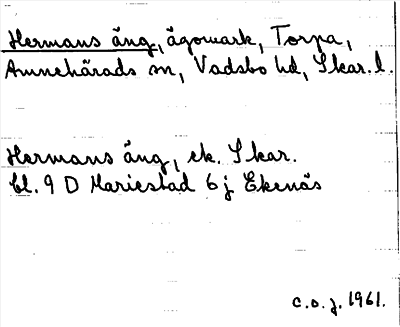 Hermans äng, ägomark, Torpa,
Amnehärads sn, Vadsbo hd, Skar. l.
Hermans äng, ek. Skar.
bl. 9 D Mariestad 6 j Ekenäs
c.o.j. 1961.